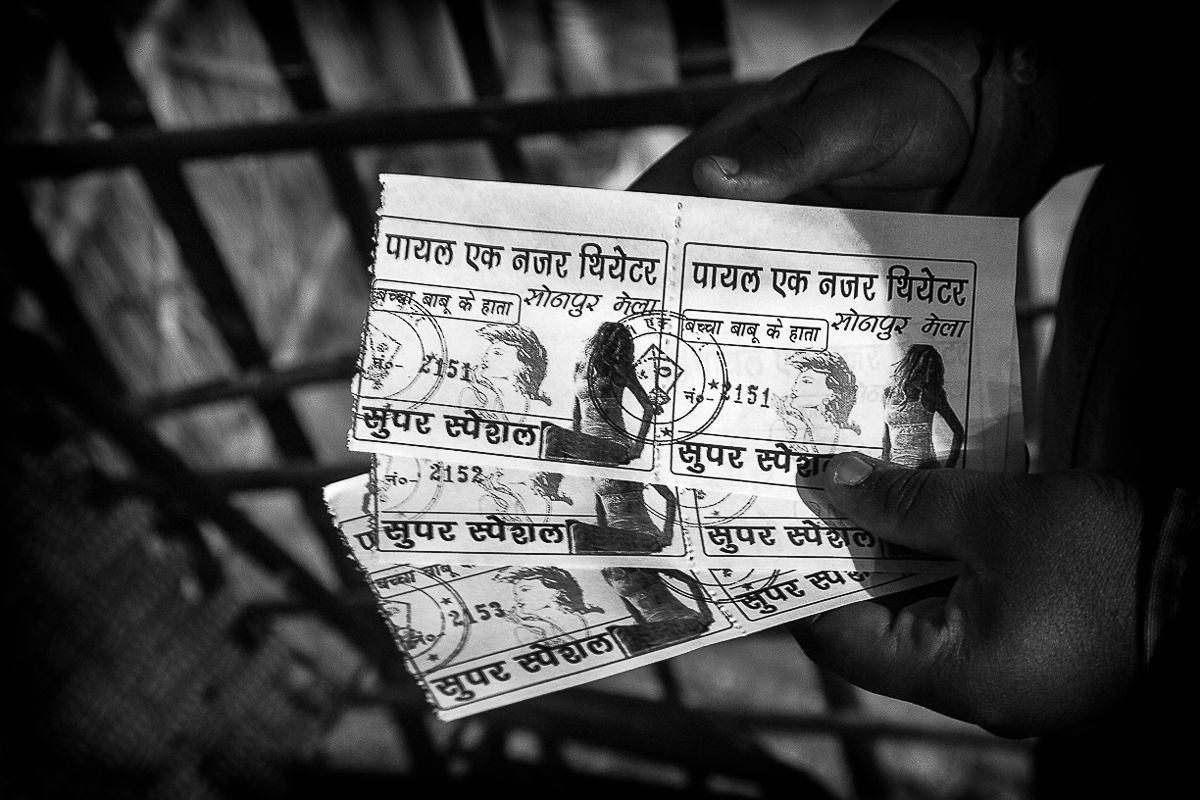 पायल एक नजर थियेटर
बच्चा बाबू के हाता सोनपुर मेला
नं०- 2151
सुपर स्पेशल
पायल एक नजर थियेटर
बच्चा बाबू के हाता सोनपुर मेला
नं०- 2151
सुपर स्पेशल
नं०- 2152
सुपर स्पेशल
सुपर स्पेशल
बच्चा बाबू
नं०- 2153
सुपर स्पेशल
सुपर स्पे